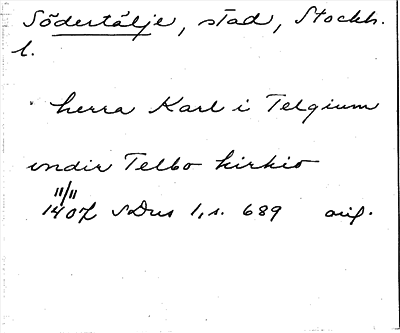 Södertälje, stad, Stockh.
l.
herra Karl i Telgium
vndir Telbo kirkio
11/11
1407 SDns 1, s. 689 orig.